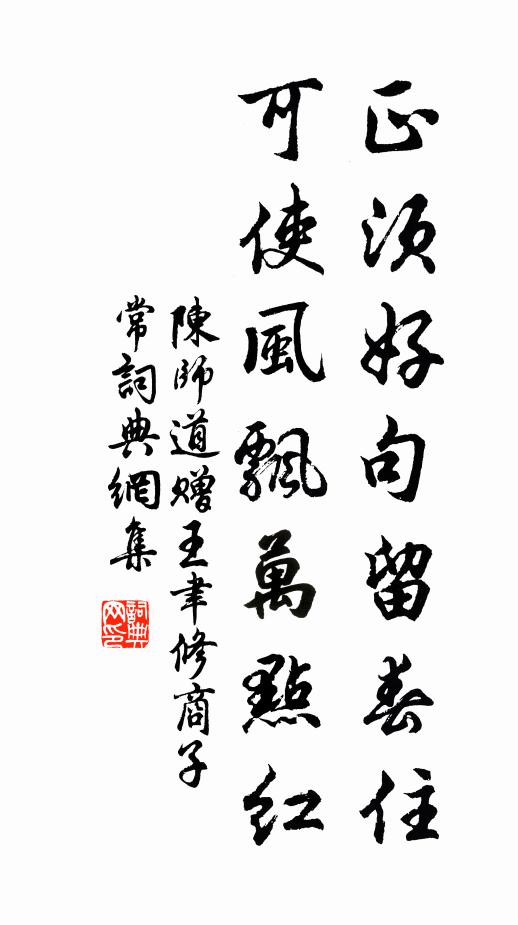 正須好句留春住
可使風飄萬點紅
陳師道贈王聿修商子
常詞典網集
詞典網印